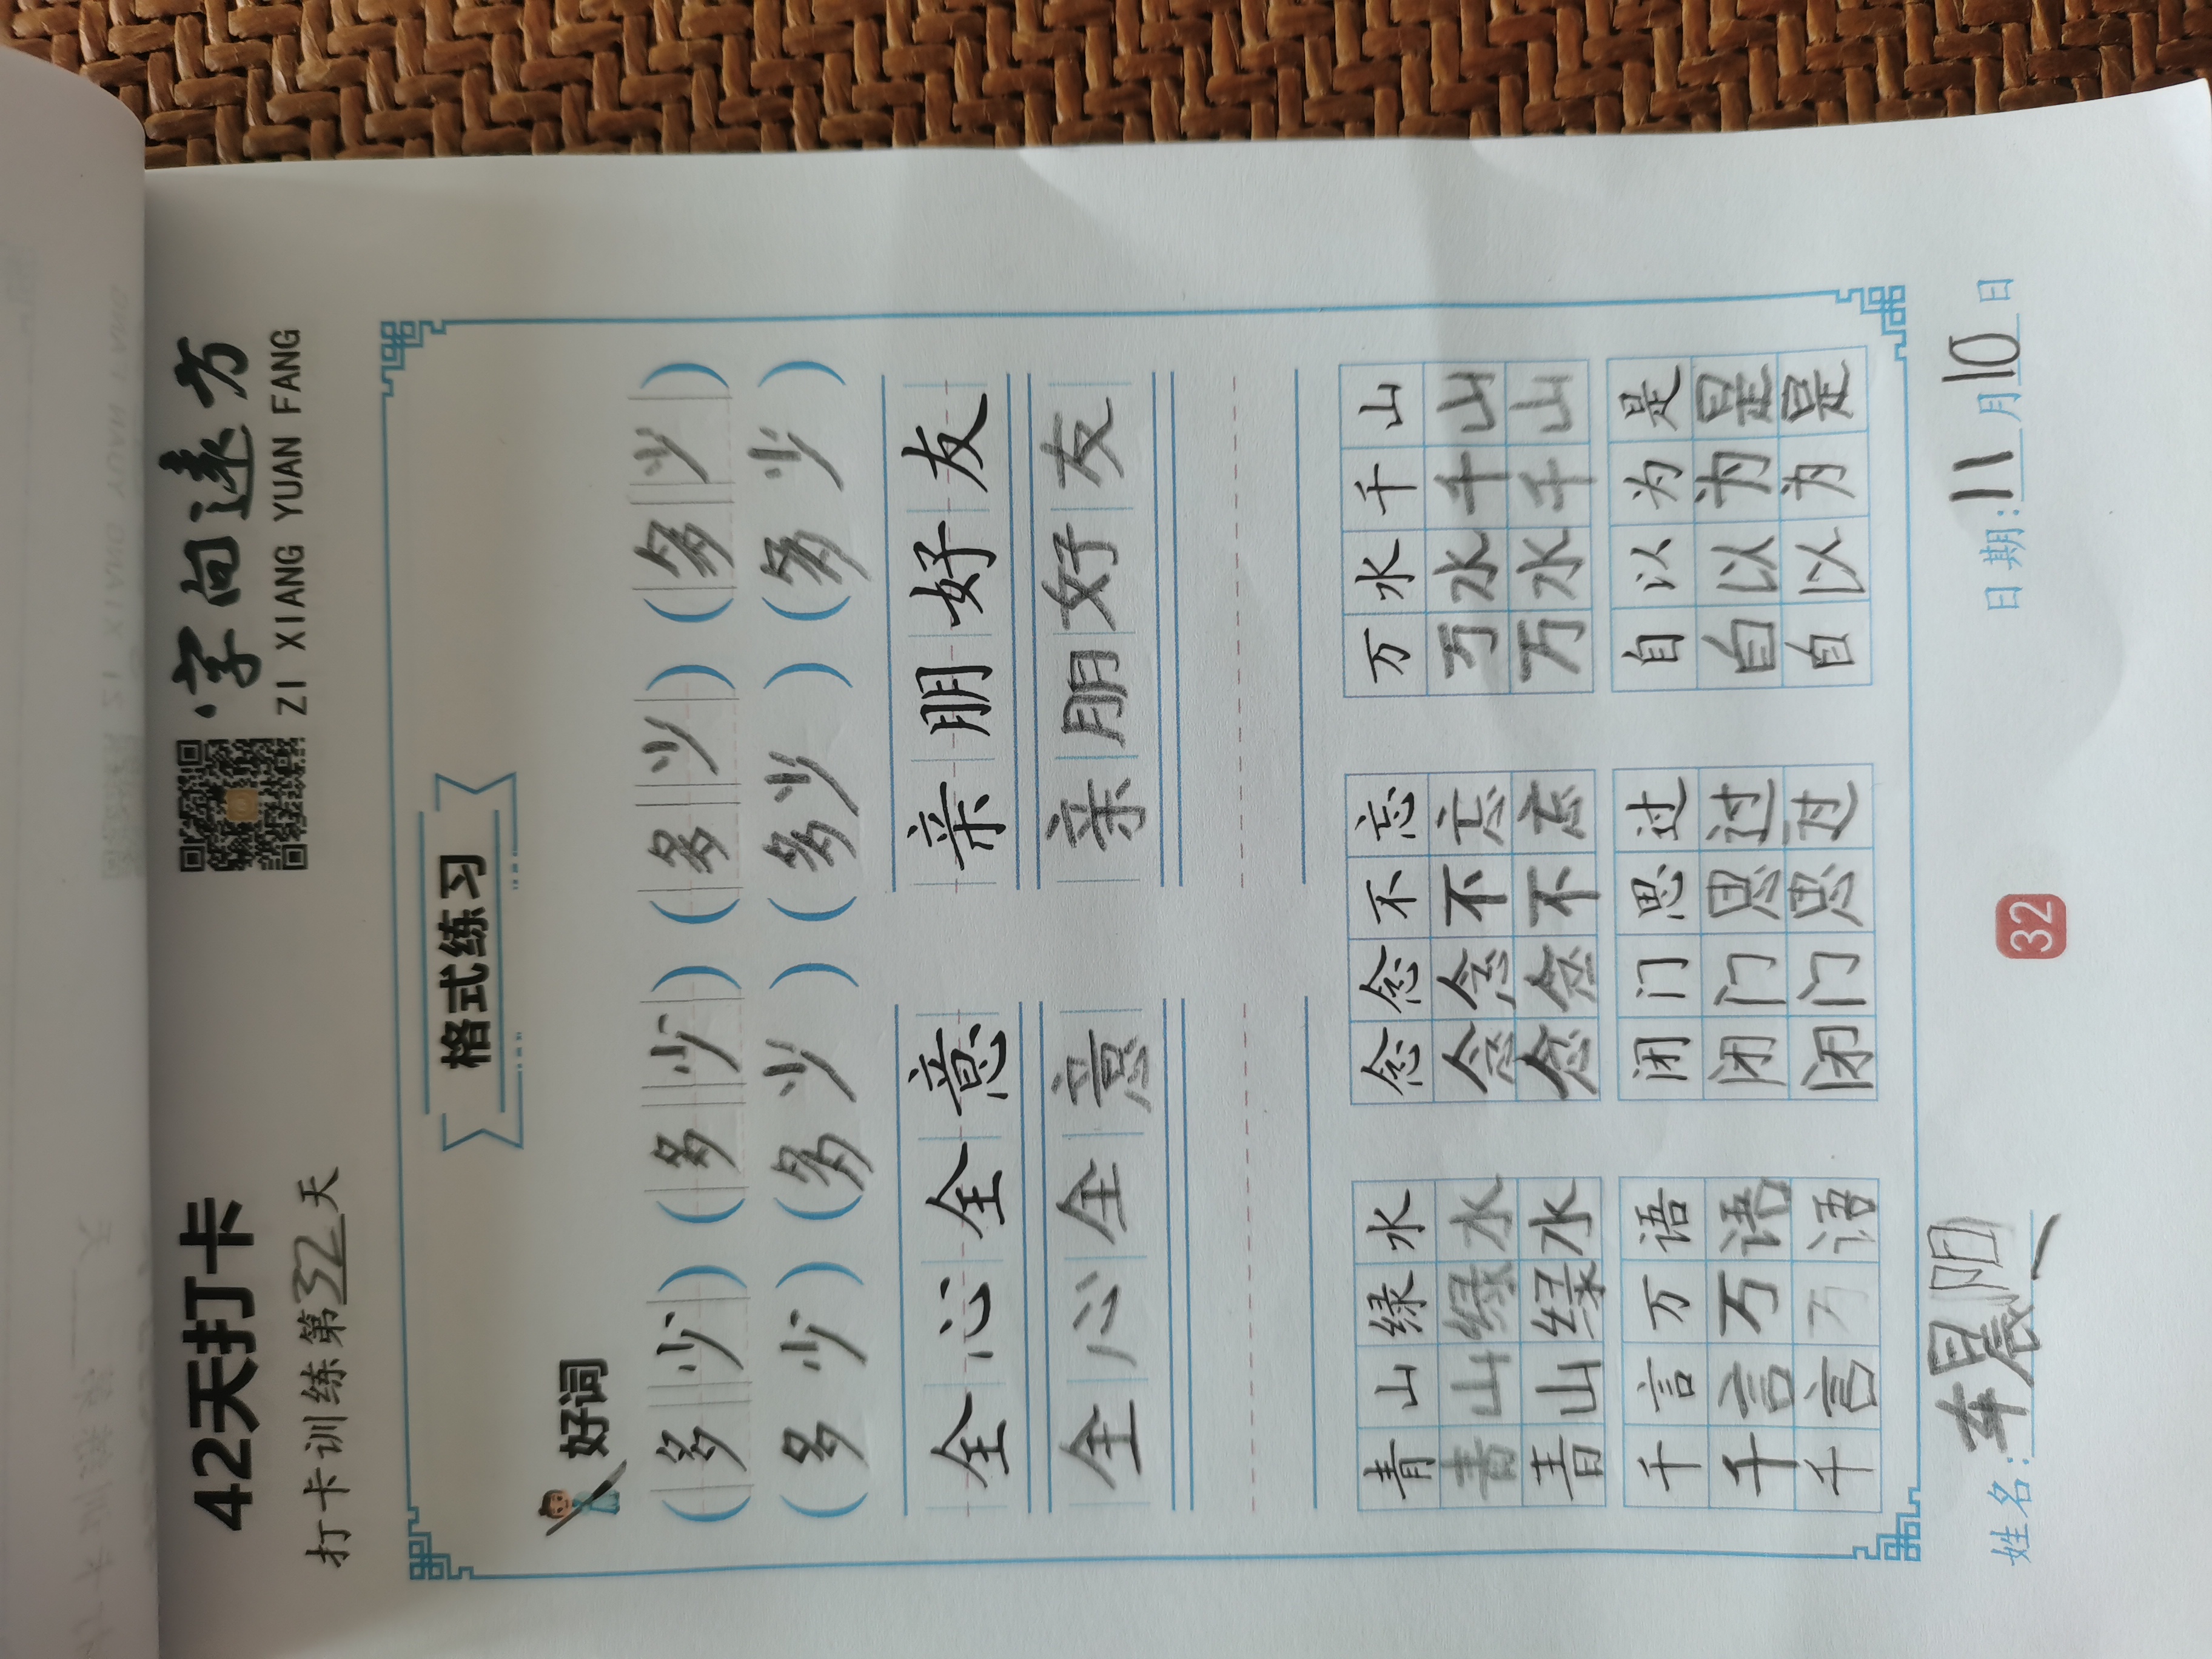 42天打卡
字向远方
ZI XIANG YUAN FANG
打卡训练第32天
格式练习
好词
(多少) (多少) (多少) (多少)
(多少) (多少) (多少) (多少)
全心全意 亲朋好友
全心全意 亲朋好友
青山绿水 念念不忘 万水千山
青山绿水 念念不忘 万水千山
青山绿水 念念不忘 万水千山
千言万语 闭门思过 自以为是
千言万语 闭门思过 自以为是
千言万语 闭门思过 自以为是
姓名:车晨阳 32 日期:11月10日